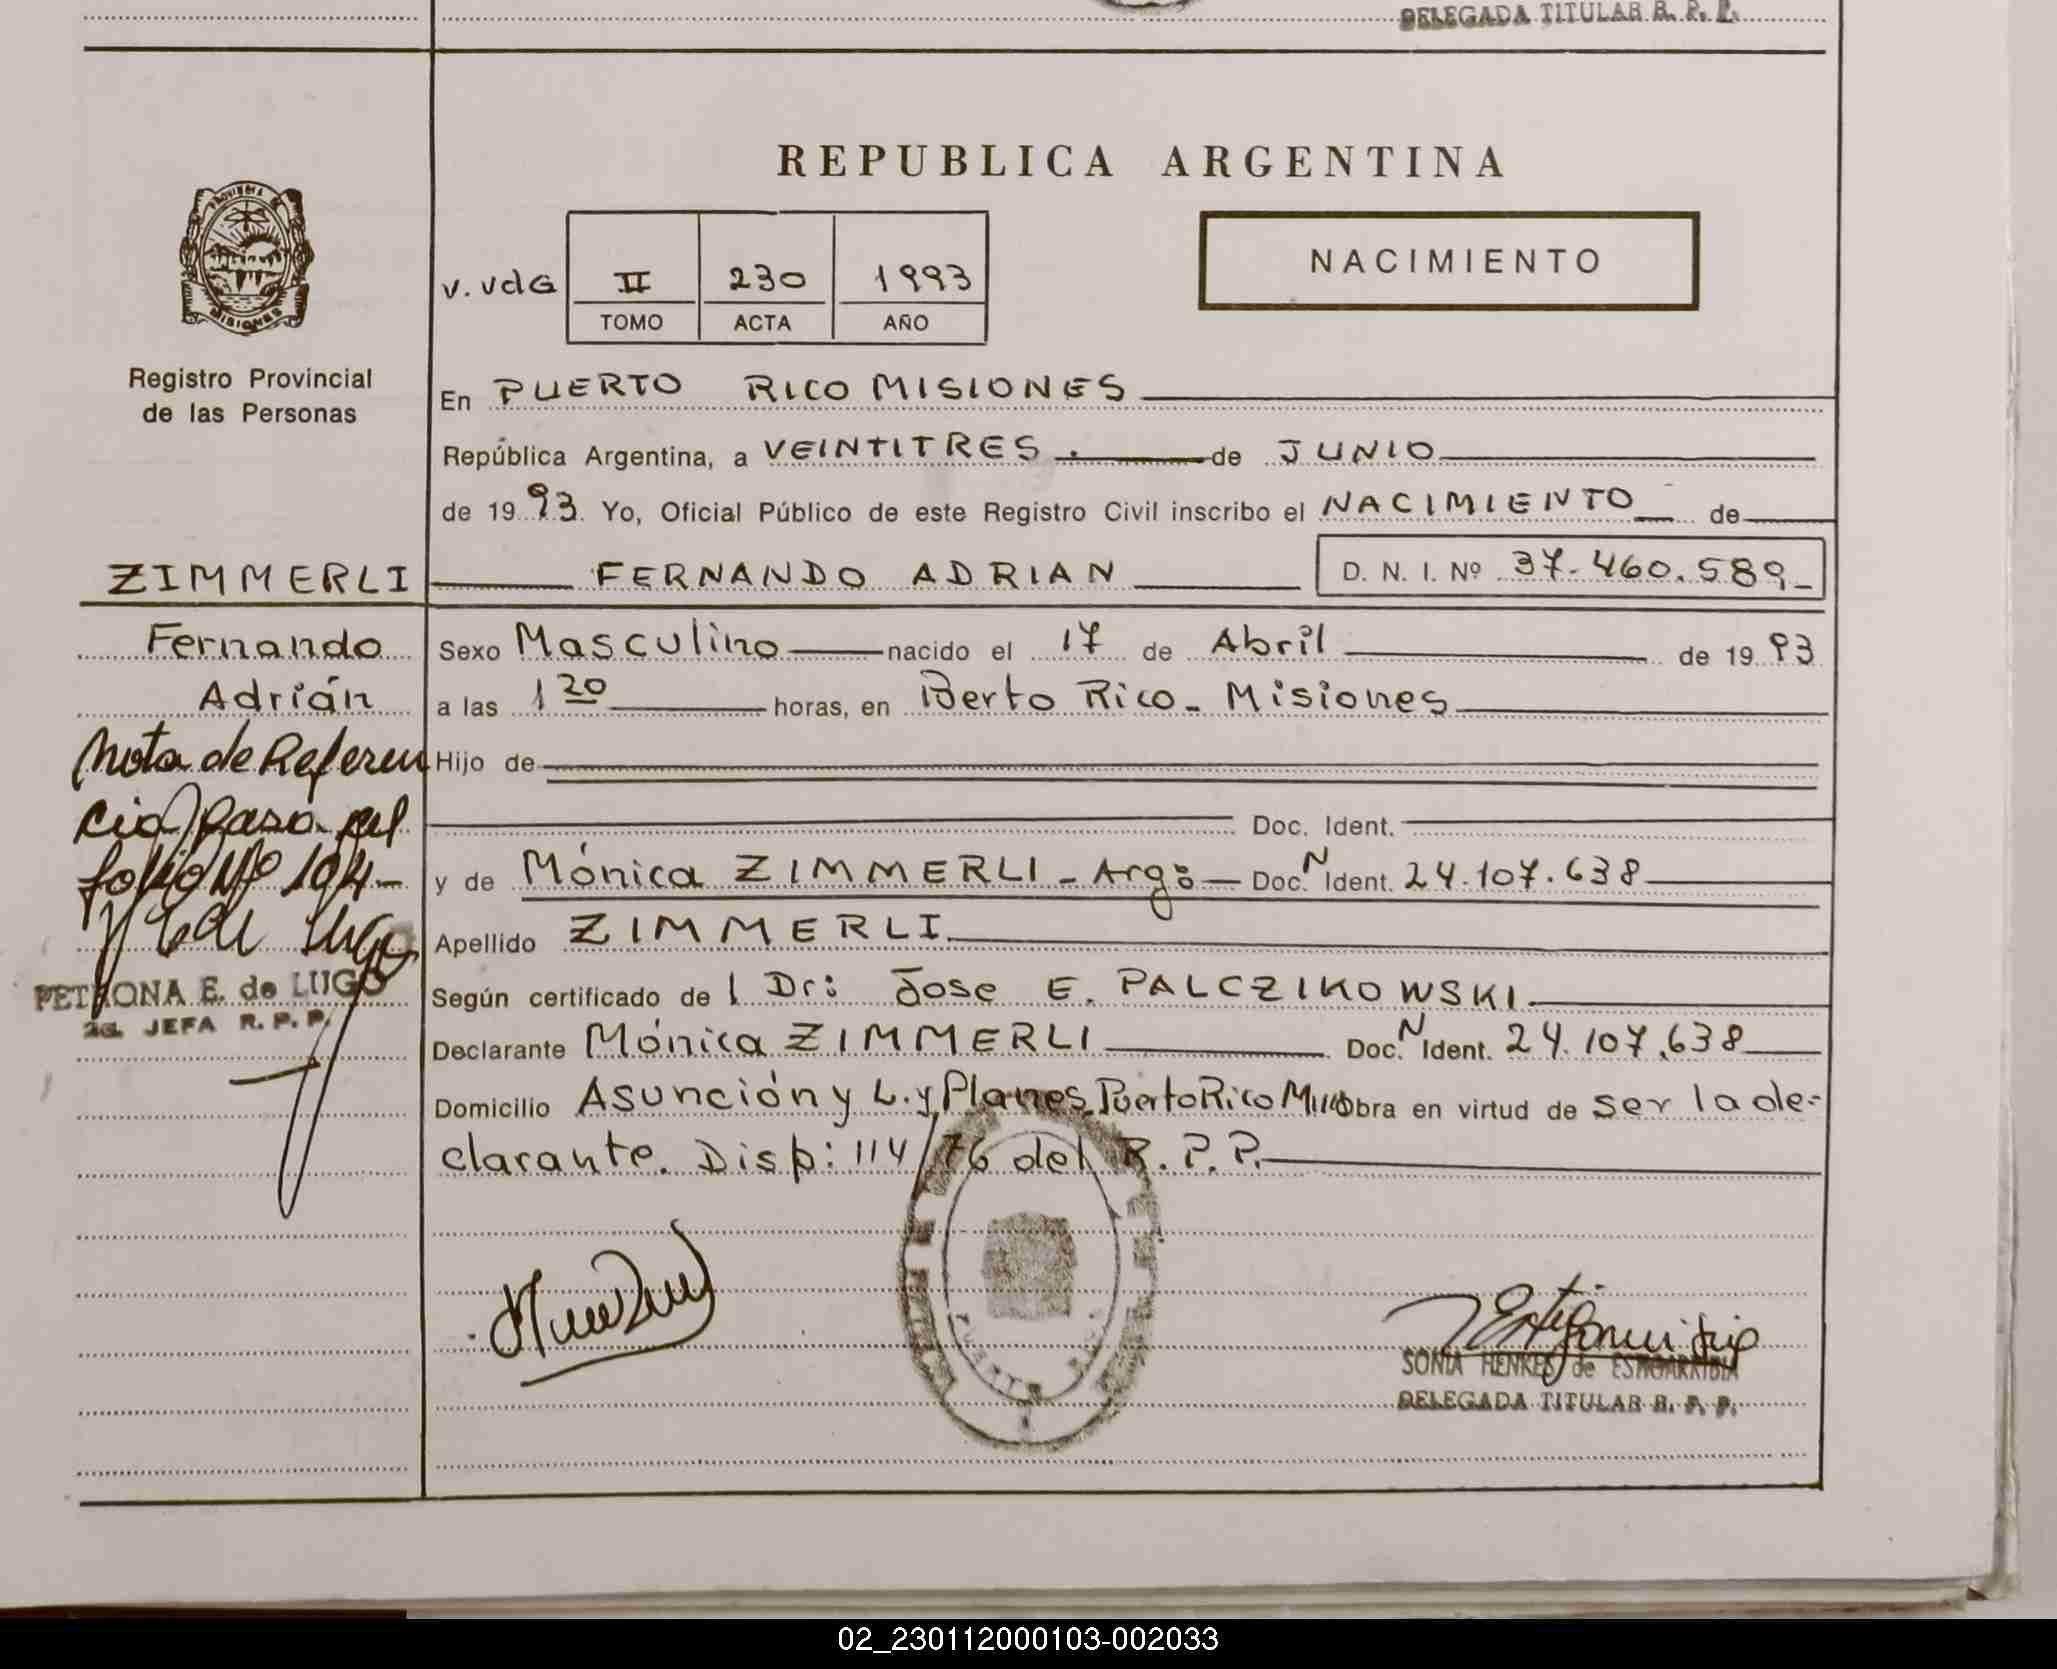 DELEGADA TITULAR R. P. P.
REPUBLICA ARGENTINA
PROVINCIA DE
MISIONES
NACIMIENTO
v. vdG II 230 1993
TOMO ACTA AÑO
Registro Provincial
de las Personas
En PUERTO RICO MISIONES
República Argentina, a VEINTITRES. de JUNIO
de 1993. Yo, Oficial Público de este Registro Civil inscribo el NACIMIENTO de
ZIMMERLI FERNANDO ADRIAN D. N. I. Nº 37.460.589
Fernando
Adrián
Nota de Referen
cia pasa al
folio Nº 194-
PETRONA E. de LUGO
2a. JEFA R. P. P.
Sexo Masculino nacido el 17 de Abril de 1993
a las 1 20 horas, en Puerto Rico - Misiones
Hijo de
Doc. Ident.
y de Mónica ZIMMERLI - Arg: Doc. N Ident. 24.107.638
Apellido ZIMMERLI
Según certificado de l Dr: Jose E. PALCZIKOWSKI
Declarante Mónica ZIMMERLI Doc. N Ident. 24.107.638
Domicilio Asunción y L. y Planes Puerto Rico Mnes Obra en virtud de ser la de-
clarante. Disp: 114/76 del R. P. P.
SONIA HENKES de ESTIGARRIBIA
DELEGADA TITULAR R. P. P.
02_230112000103-002033